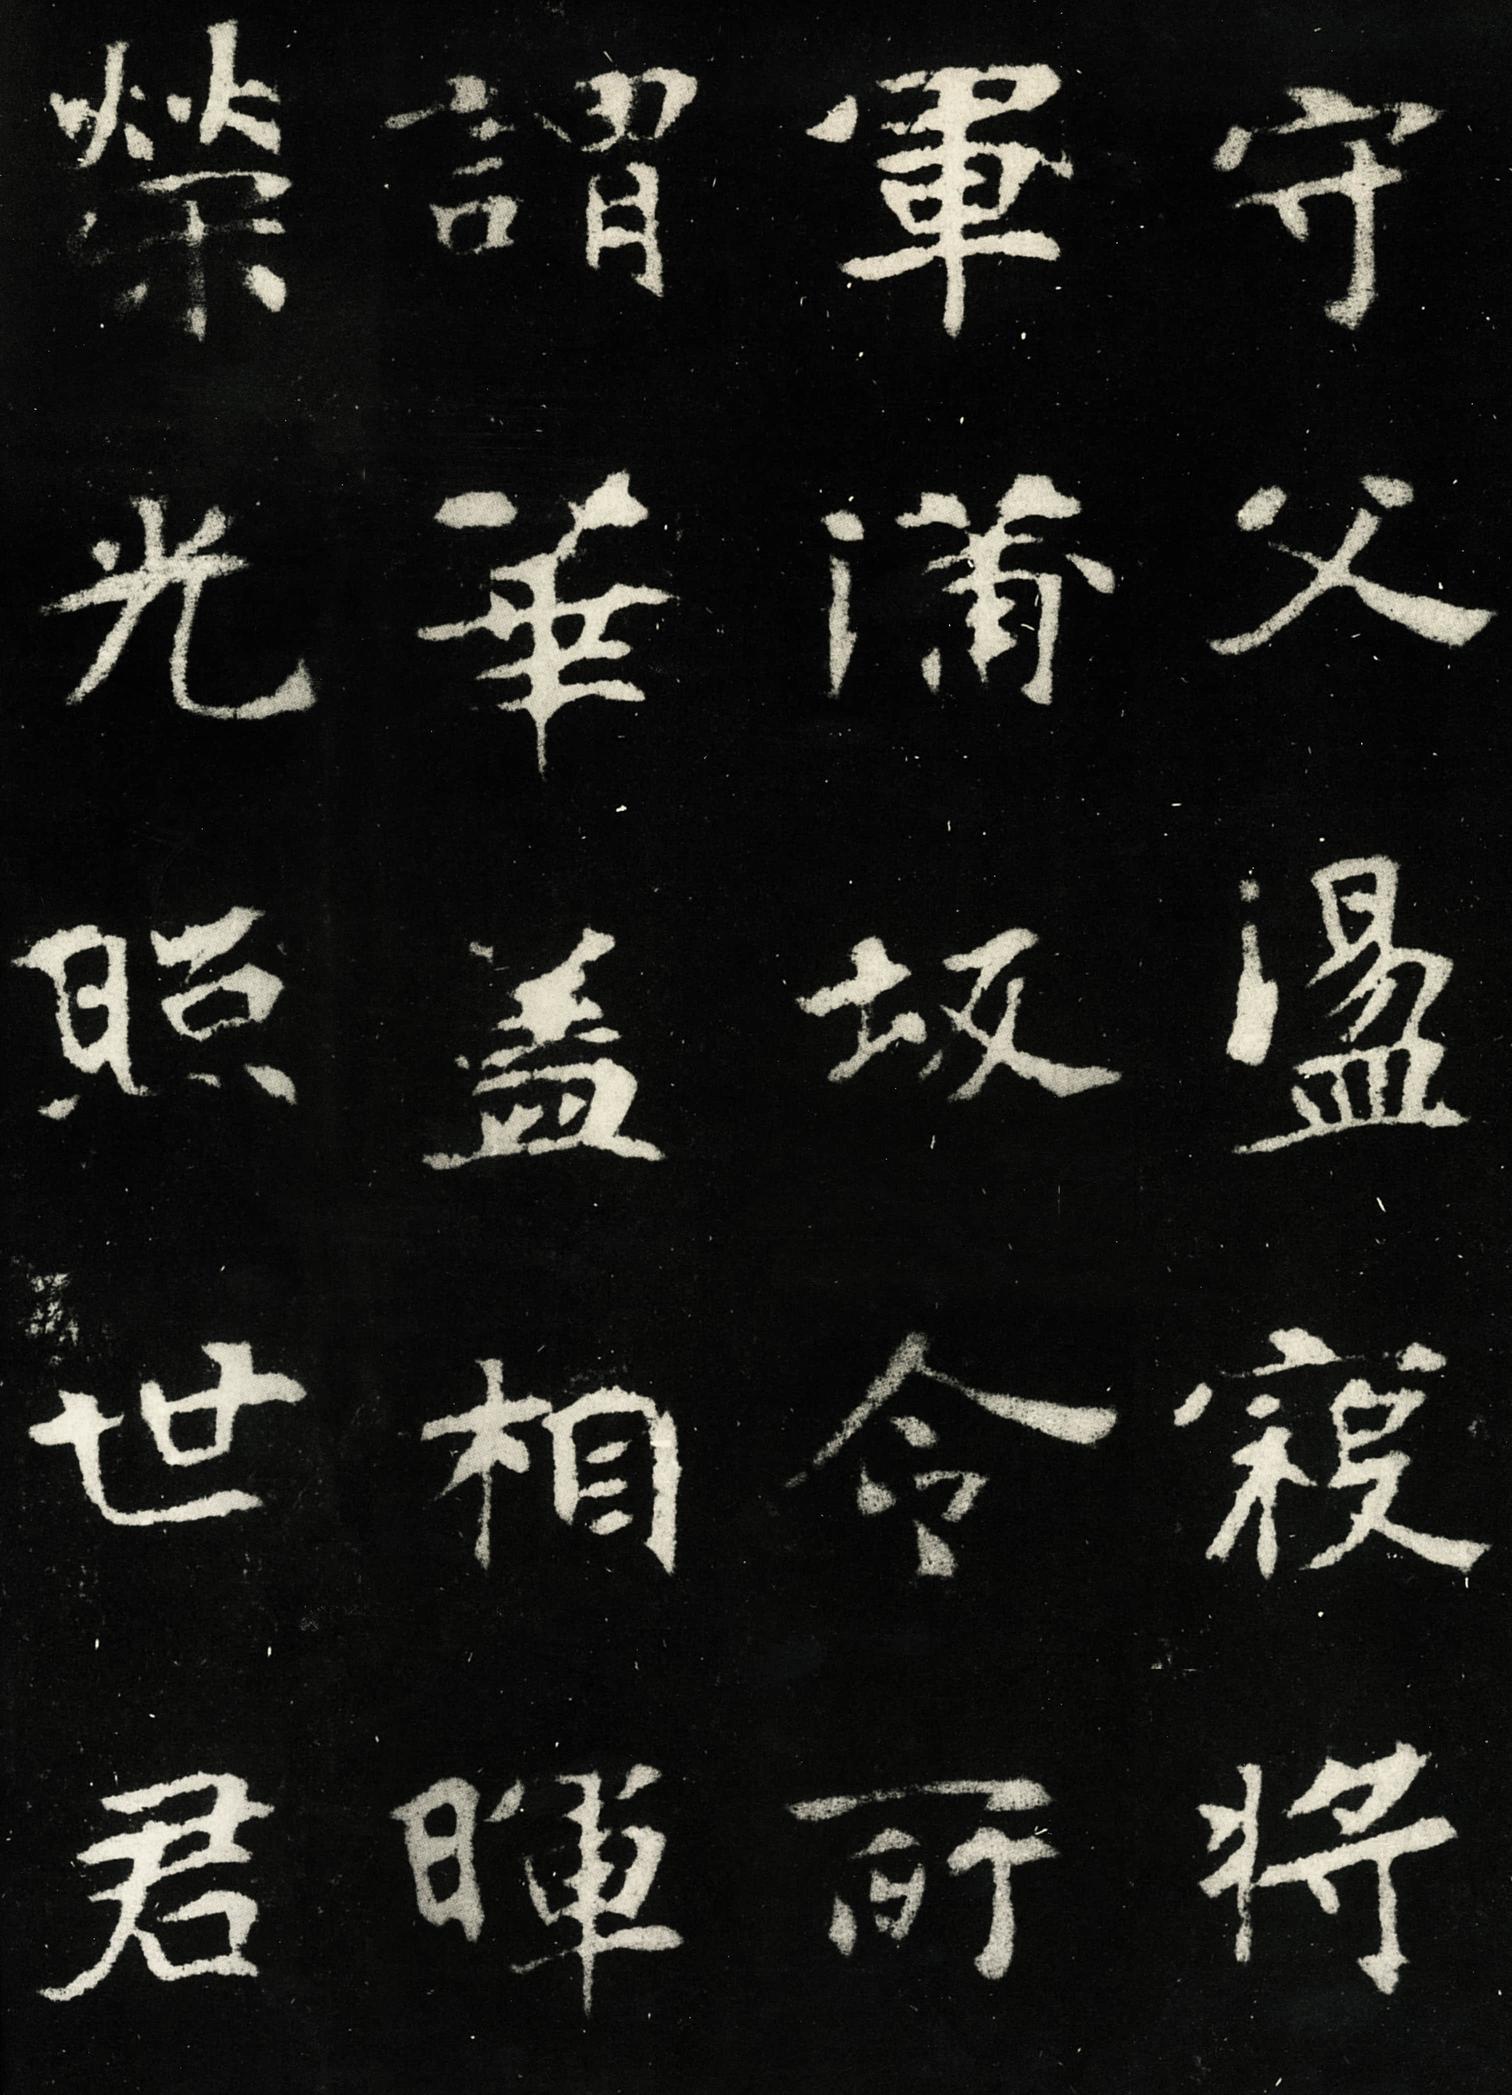 守父盪寇將
軍蒲坂令所
謂華盖相暉
榮光照世君